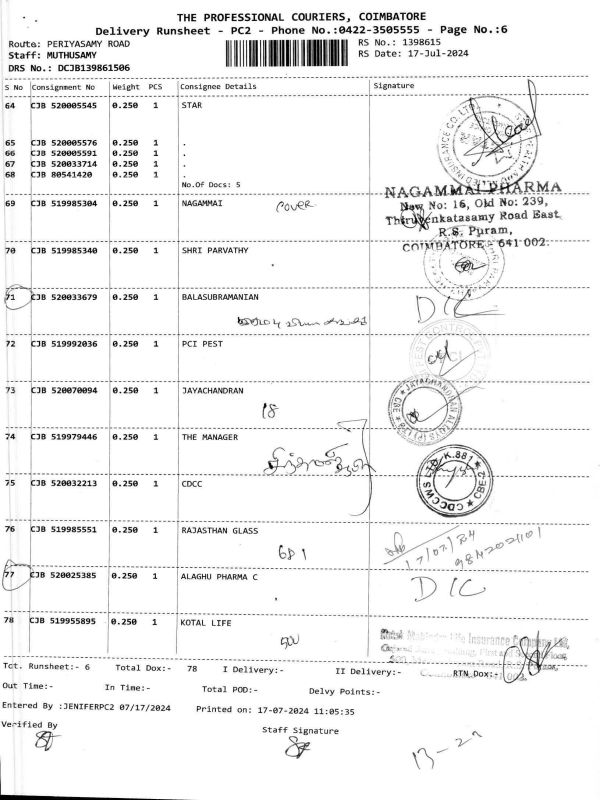 THE PROFESSIONAL COURIERS, COIMBATORE
Delivery Runsheet - PC2 - Phone No.:0422-3505555 - Page No.:6
Route: PERIYASAMY ROAD RS No.: 1398615
Staff: MUTHUSAMY RS Date: 17-Jul-2024
DRS No.: DCJB139861506
S No Consignment No Weight PCS Consignee Details Signature
64 CJB 520005545 0.250 1 STAR
65 CJB 520005576 0.250 1 .
66 CJB 520005591 0.250 1 .
67 CJB 520033714 0.250 1 .
68 CJB 80541420 0.250 1 .
No.Of Docs: 5
NAGAMMAI PHARMA
69 CJB 519985304 0.250 1 NAGAMMAI cover New No: 16, Old No: 239,
Thiruvenkatasamy Road East
R.S. Puram,
COIMBATORE - 641 002.
70 CJB 519985340 0.250 1 SHRI PARVATHY
71 CJB 520033679 0.250 1 BALASUBRAMANIAN D/C
72 CJB 519992036 0.250 1 PCI PEST
73 CJB 520070094 0.250 1 JAYACHANDRAN 18
74 CJB 519979446 0.250 1 THE MANAGER
75 CJB 520032213 0.250 1 CDCC
CDCCWS LTD K.881 CBE-2
76 CJB 519985551 0.250 1 RAJASTHAN GLASS 681
17/07/24
9842021101
77 CJB 520025385 0.250 1 ALAGHU PHARMA C D/C
78 CJB 519955895 0.250 1 KOTAL LIFE 500
Kotak Mahindra Life Insurance Company Ltd,
Tct. Runsheet:- 6 Total Dox:- 78 I Delivery:- II Delivery:- RTN_Dox:-
Out Time:- In Time:- Total POD:- Delvy Points:-
Entered By :JENIFERPC2 07/17/2024 Printed on: 17-07-2024 11:05:35
Verified By Staff Signature